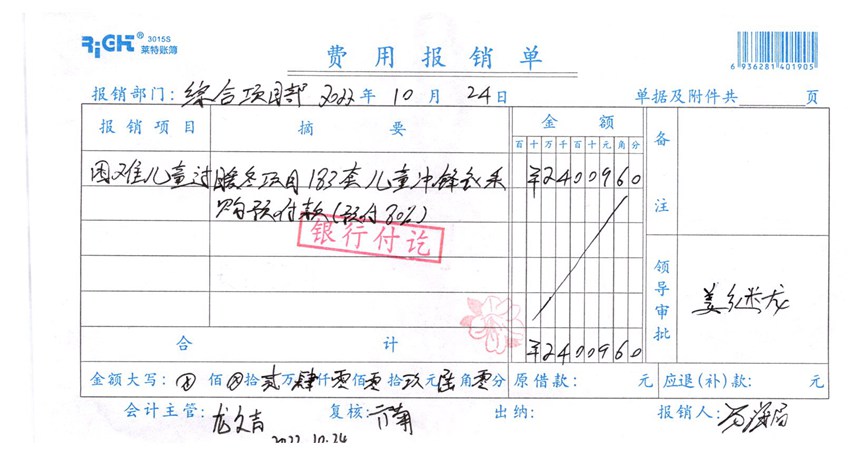 RiGHT® 3015S
莱特账簿
费用报销单
6 936281 401905
报销部门: 综合项目部 2022年 10月 24日 单据及附件共 页
报销项目 摘要 金额 备注
百十万千百十元角分
困难儿童过暖冬项目183套儿童冲锋衣采 ¥2400960
购预付款(预付30%)
银行付讫
领导审批 姜继龙
合计 ¥2400960
金额大写: ⊗佰⊗拾贰万肆仟零佰零拾玖元陆角零分 原借款: 元 应退(补)款: 元
会计主管: 龙文吉 复核: 出纳: 报销人:
2022.10.24